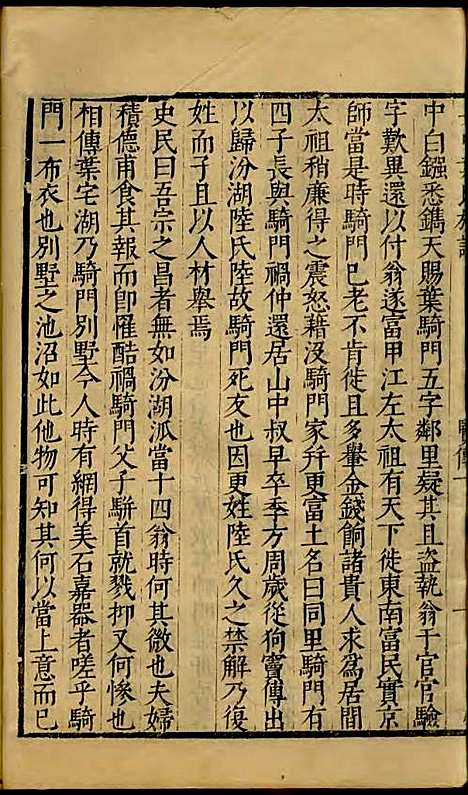 中白鏹悉鐫天賜葉騎門五字鄰里疑其且盜執翁于官官驗
字歎異還以付翁遂富甲江左太祖有天下徙東南富民實京
師當是時騎門已老不肯徙且多轝金錢餉諸貴人求為居間
太祖稍廉得之震怒藉沒騎門家幷更富土名曰同里騎門有
四子長與騎門禍仲還居山中叔早卒季方周歲從狗竇傳出
以歸汾湖陸氏陸故騎門死友也因更姓陸氏久之禁解乃復
姓而子且以人材舉焉
史民曰吾宗之昌者無如汾湖派當十四翁時何其微也夫婦
積德甫食其報而卽懼酷禍騎門父子駢首就戮抑又何慘也
相傳葉宅湖乃騎門別墅今人時有網得美石嘉器者嗟乎騎
門一布衣也別墅之池沼如此他物可知其何以當上意而已